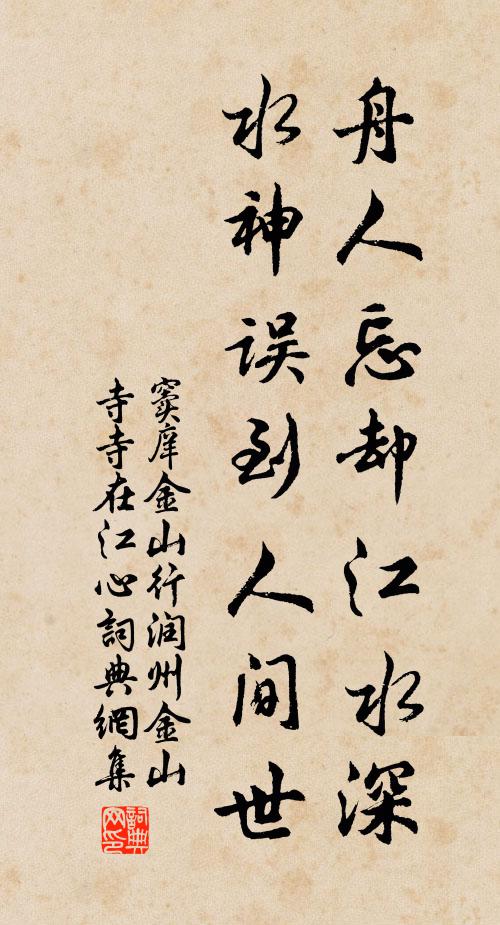 舟人忘却江水深
水神误到人间世
窦庠金山行润州金山
寺寺在江心詞典網集
詞典
网印